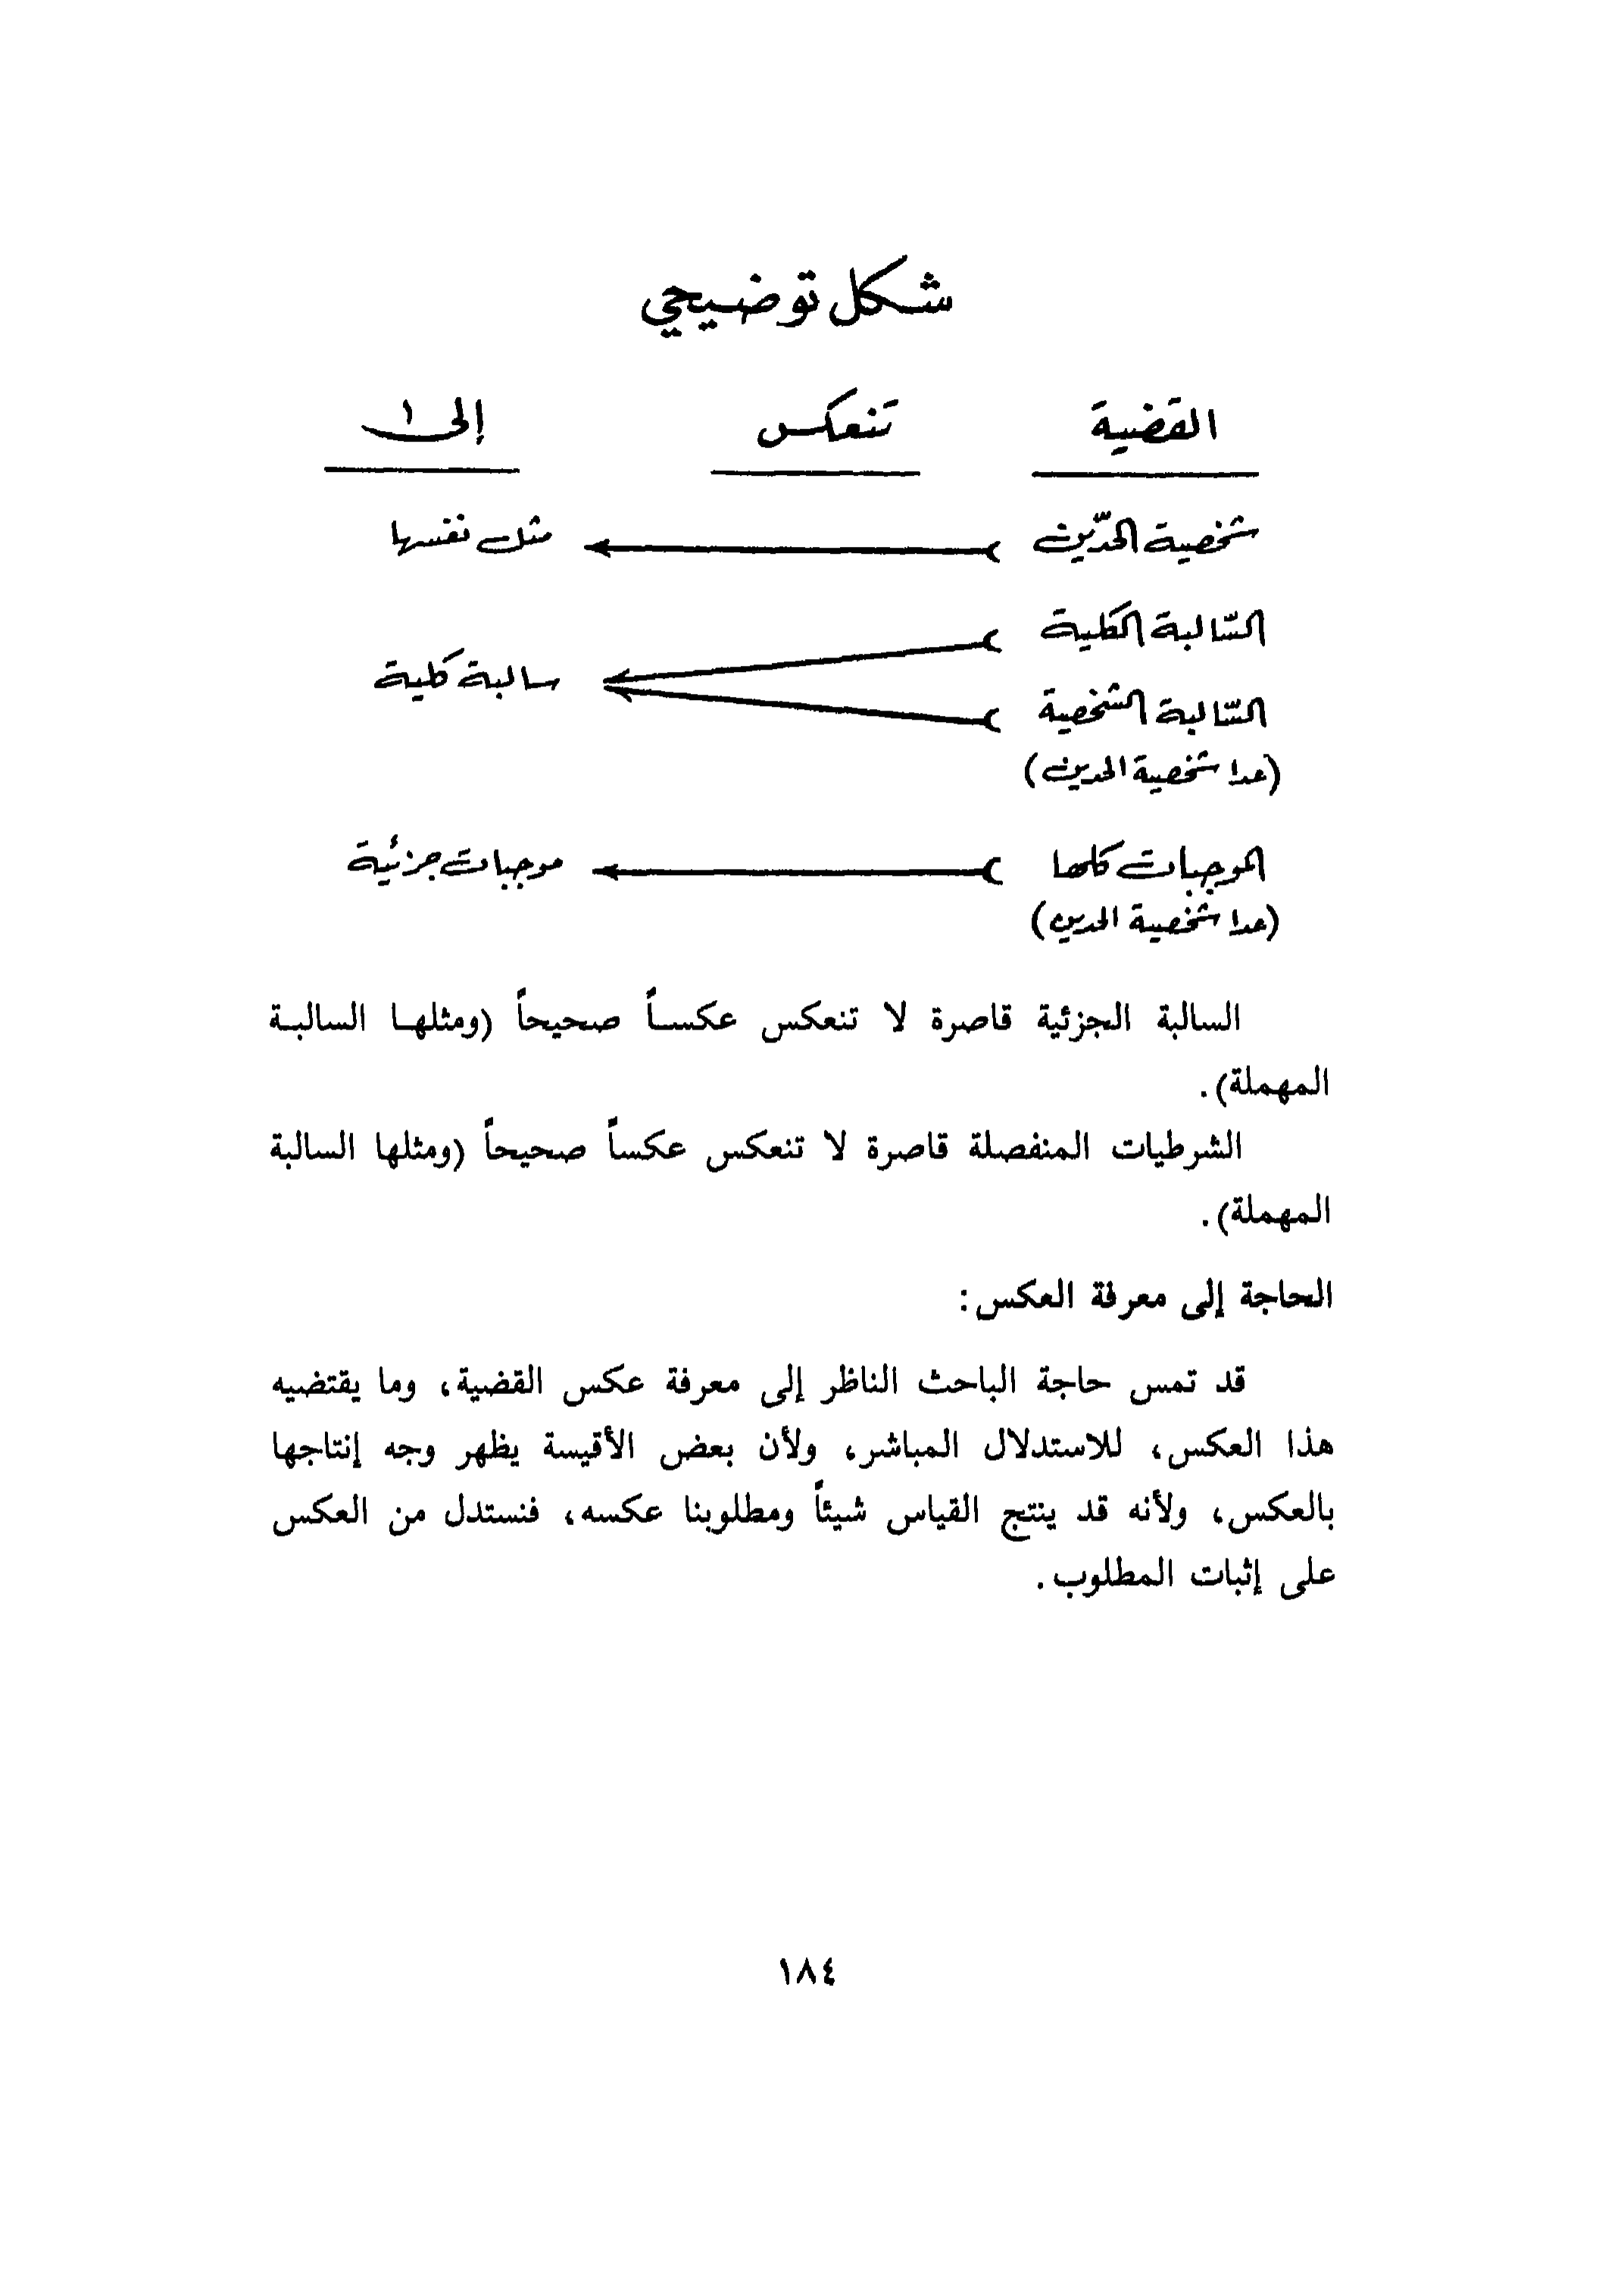 شكل توضيحي
القضية تنعكس إلى
شخصية الحدّين مثل نفسها
السّالبة الكلية
سالبة كلية
السّالبة الشخصية
(عدا شخصية الحدين)
الموجبات كلها موجبات جزئية
(عدا شخصية الحدين)
السالبة الجزئية قاصرة لا تنعكس عكساً صحيحاً (ومثلها السالبة
المهملة).
الشرطيات المنفصلة قاصرة لا تنعكس عكساً صحيحاً (ومثلها السالبة
المهملة).
الحاجة إلى معرفة العكس:
قد تمس حاجة الباحث الناظر إلى معرفة عكس القضية، وما يقتضيه
هذا العكس، للاستدلال المباشر، ولأن بعض الأقيسة يظهر وجه إنتاجها
بالعكس، ولأنه قد ينتج القياس شيئاً ومطلوبنا عكسه، فنستدل من العكس
على إثبات المطلوب.
١٨٤